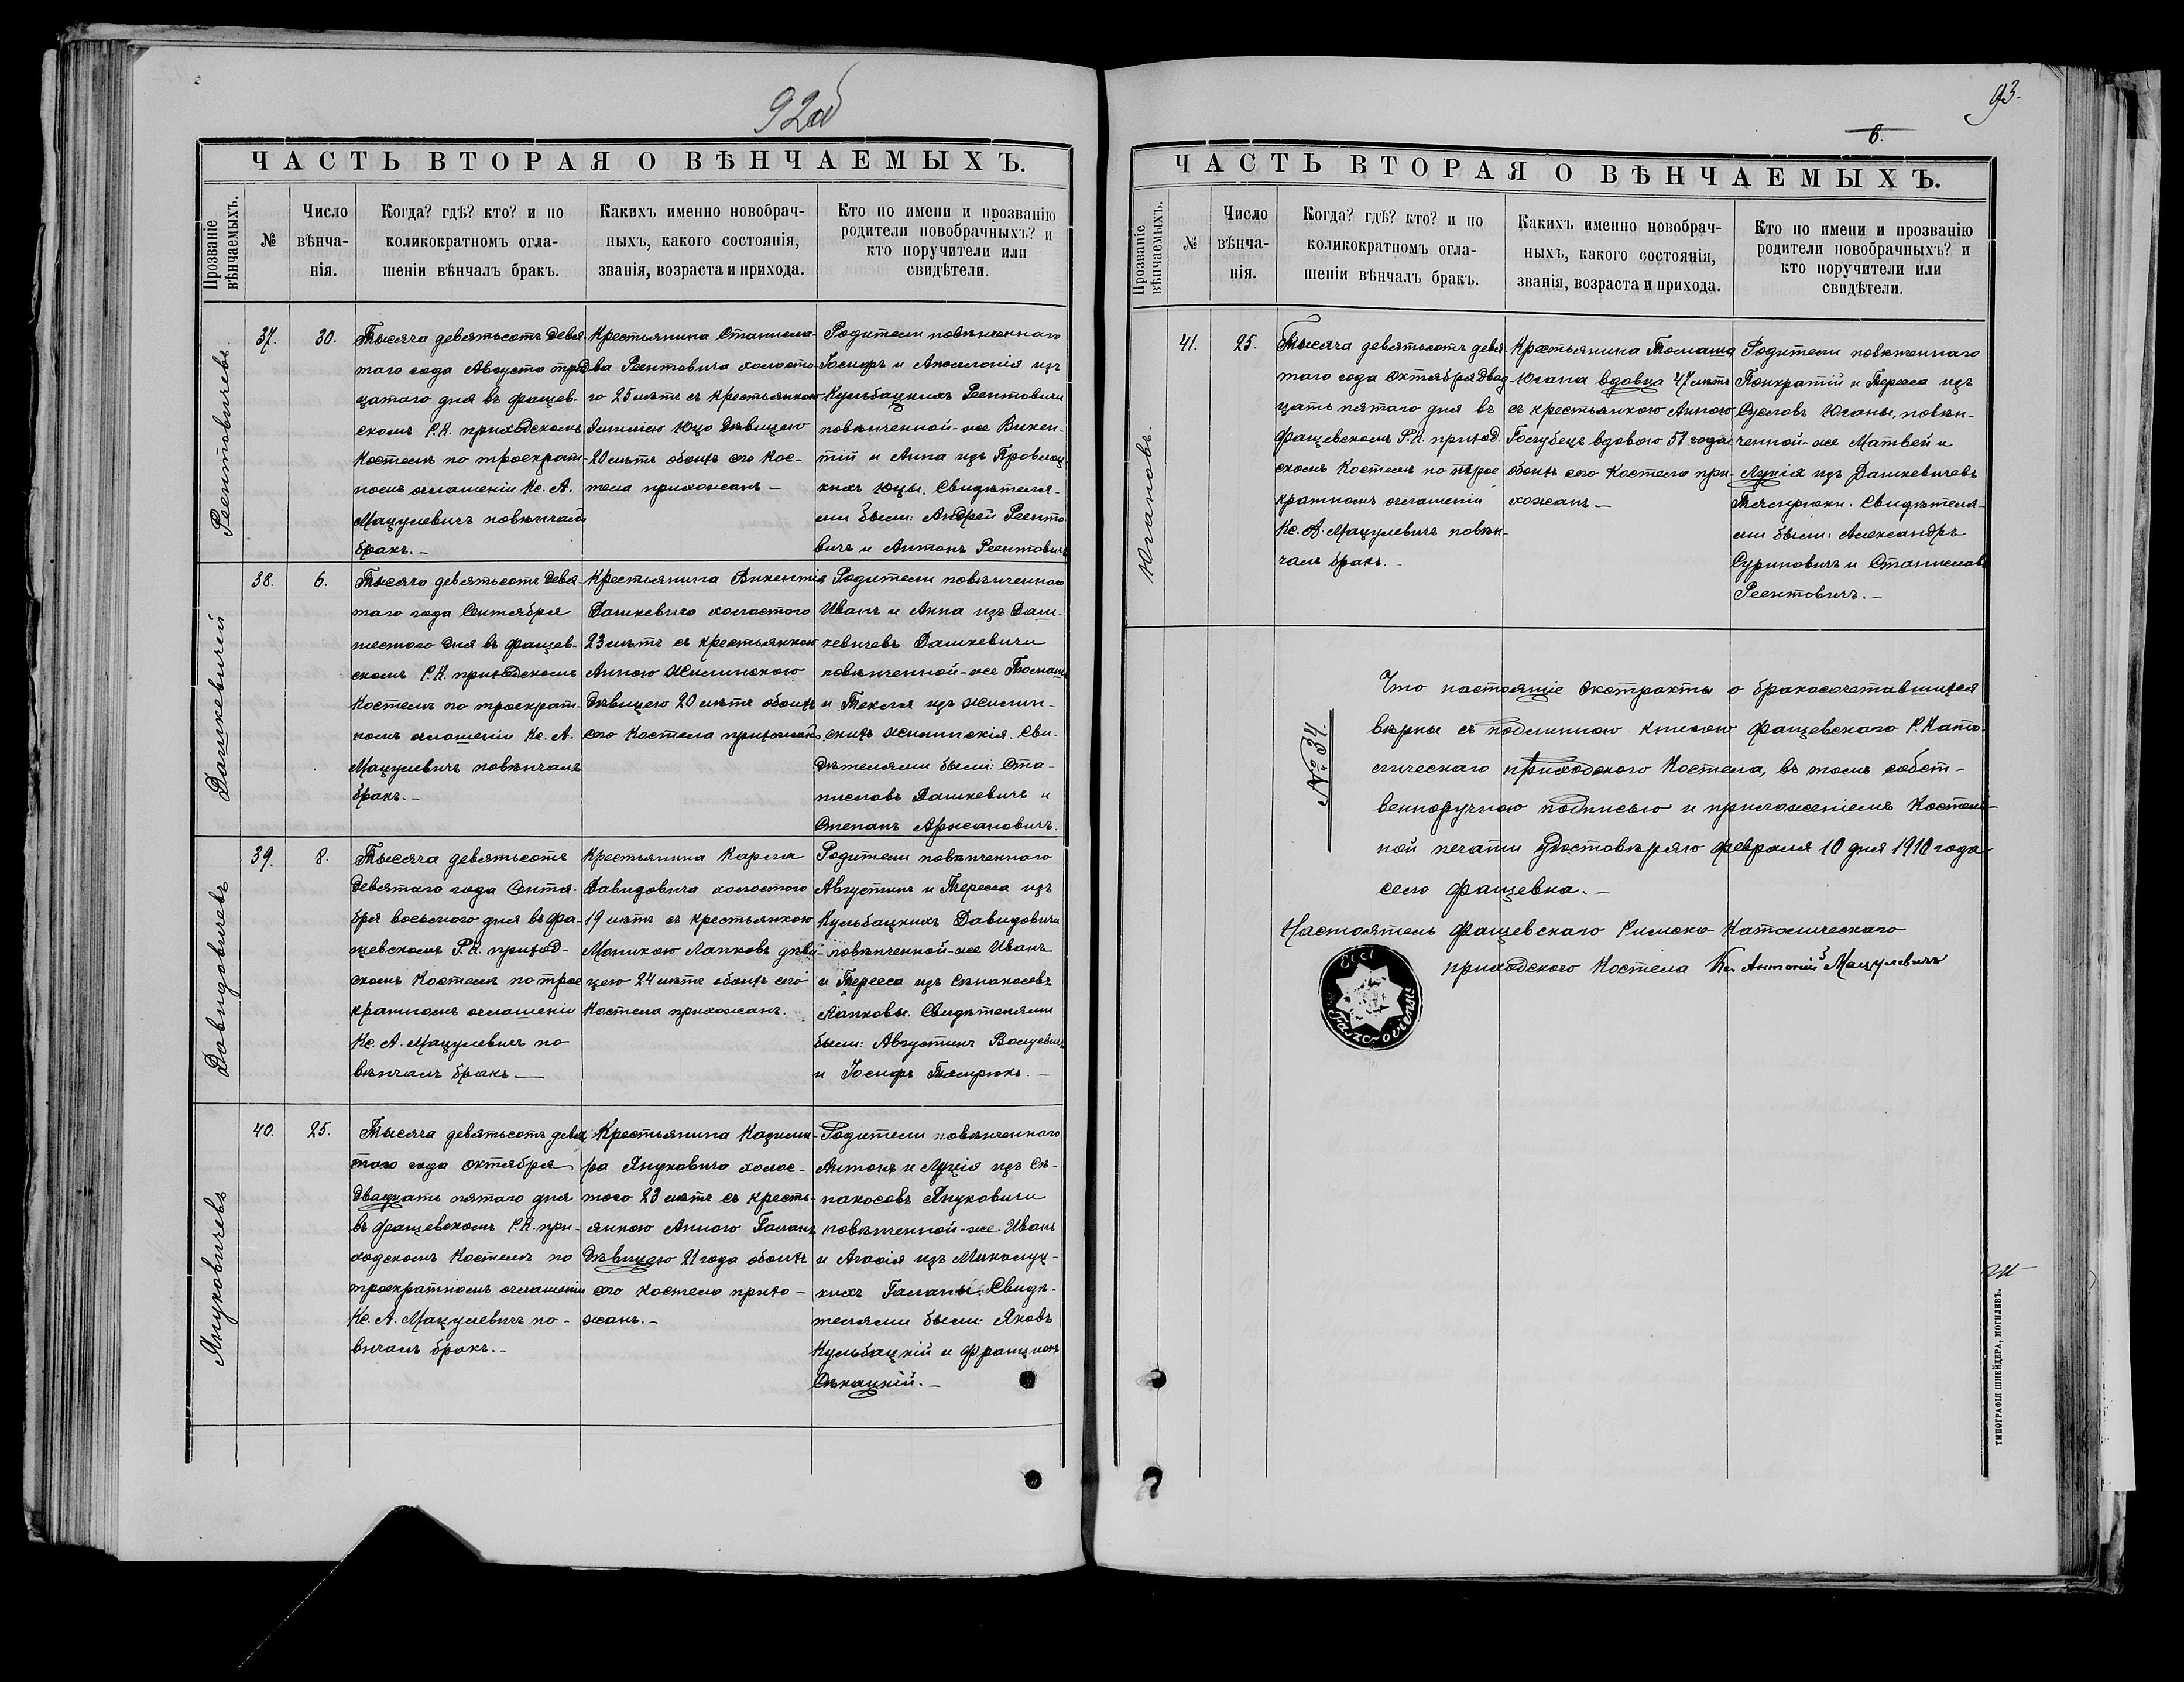 92об
ЧАСТЬ ВТОРАЯ О ВѢНЧАЕМЫХЪ.
Прозваніе
вѣнчаемыхъ.
№
Число
вѣнча-
нія.
Когда? гдѣ? кто? и по
коликократномъ огла-
шеніи вѣнчалъ бракъ.
Какихъ именно новобрач-
ныхъ, какого состоянія,
званія, возраста и прихода.
Кто по имени и прозванію
родители новобрачныхъ? и
кто поручители или
свидѣтели.
Реентовичевъ.
37.
30.
Тысяча девятьсотъ девя-
таго года Августа трид-
цатаго дня въ Фащев-
скомъ Р.К. приходскомъ
Костелѣ по троекрат-
номъ оглашеніи Кс. А.
Мацулевичъ повѣнчалъ
бракъ.-
Крестьянина Станисла-
ва Реентовича холосто-
го 25 лѣтъ съ крестьянкою
Эмиліею Юцо дѣвицею
20 лѣтъ обоихъ сего Кос-
тела прихожанъ -
Родители повѣнченнаго
Іосифъ и Аполлонія изъ
Кульбацкихъ Реентовичи
повѣнченной-же Викен-
тій и Анна изъ
кихъ Юцы. Свидѣтеля-
ми были: Андрей Реенто
вичъ и Антонъ Реентовичъ
Дашкевичей
38.
6.
Тысяча девятьсотъ девя-
таго года Сентября
шестого дня въ Фащев-
скомъ Р.К. приходскомъ
Костелѣ по троекрат-
номъ оглашеніи Кс. А.
Мацулевичъ повѣнчалъ
бракъ.-
Крестьянина Викентія
Дашкевича холостого
23 лѣтъ съ крестьянкою
Анною Жилинскою
дѣвицею 20 лѣтъ обоихъ
сего Костела прихожанъ.
Родители повѣнченнаго
Иванъ и Анна изъ Даш-
кевичевъ Дашкевичи
повѣнченной-же Томашъ
и Текля изъ Жилин-
скихъ Жилинскія. Сви-
дѣтелями были: Ста-
ниславъ Дашкевичъ и
Степанъ Аржановичъ.
Давидовичевъ
39.
8.
Тысяча девятьсотъ
девятаго года Сентя-
бря восьмого дня въ Фа-
щевскомъ Р.К. приход-
скомъ Костелѣ по трое
кратномъ оглашеніи
Кс. А. Мацулевичъ по
вѣнчалъ бракъ -
Крестьянина Карла
Давидовича холостого
19 лѣтъ съ крестьянкою
Моникою Лапковъ дѣви-
цею 24 лѣтъ обоихъ сего
Костела прихожанъ.
Родители повѣнченнаго
Августинъ и Тереса изъ
Кульбацкихъ Давидовичи
повѣнченной-же Иванъ
и Тереса изъ Сѣнокосовъ
Лапковы. Свидѣтелями
были: Августинъ
и Іосифъ -
Януковичевъ
40.
25.
Тысяча девятьсотъ девя
таго года октября
двадцать пятаго дня
въ Фащевскомъ Р.К. при-
ходскомъ Костелѣ по
троекратномъ оглашеніи
Кс. А. Мацулевичъ по-
вѣнчалъ бракъ.-
Крестьянина Казими-
ра Януковича холос-
того 23 лѣтъ съ кресть-
янкою Анною Галанъ
дѣвицею 21 года обоихъ
сего костела прихо-
жанъ.-
Родители повѣнченнаго
Антонъ и Луція изъ Сѣ-
нокосовъ Януковичи
повѣнченной-же Иванъ
и Агафія изъ Миколуц-
кихъ Галаны. Свидѣ-
телями были: Яковъ
Кульбацкій и Францискъ
Сѣнацкій.-
93.
6.
ЧАСТЬ ВТОРАЯ О ВѢНЧАЕМЫХЪ.
Прозваніе
вѣнчаемыхъ.
№
Число
вѣнча-
нія.
Когда? гдѣ? кто? и по
коликократномъ огла-
шеніи вѣнчалъ бракъ.
Какихъ именно новобрач-
ныхъ, какого состоянія,
званія, возраста и прихода.
Кто по имени и прозванію
родители новобрачныхъ? и
кто поручители или
свидѣтели.
Югановъ.
41.
25.
Тысяча девятьсотъ девя-
таго года октября двад-
цать пятаго дня въ
Фащевскомъ Р.К. приход-
скомъ Костелѣ по трое
кратномъ оглашеніи
Кс. А. Мацулевичъ повѣн-
чалъ бракъ.-
Крестьянина Томаша
Югана вдовца 47 лѣтъ
съ крестьянкою Анною
Голубецъ вдовою 51 года
обоихъ сего Костела при-
хожанъ -
Родители повѣнченнаго
Понкратій и Тереса изъ
Сусловъ Юганы, повѣн-
ченной-же Матвей и
Луція изъ Дашкевичевъ
Свидѣтеля-
ми были: Александръ
Суриновичъ и Станиславъ
Реентовичъ.-
№ 34.
Что настоящіе экстракты о бракосочетавшихся
вѣрны съ подлинною книгою Фащевскаго Р. Като-
лическаго приходского Костела, въ томъ собст-
венноручною подписью и приложеніемъ Костель-
ной печати удостовѣряю Февраля 10 дня 1910 года
село Фащевка.-
Настоятель Фащевскаго Римско-Католическаго
приходского Костела Кс. Антоній Мацулевичъ
ТИПОГРАФІЯ ШНЕЙДЕРА, МОГИЛЕВЪ.